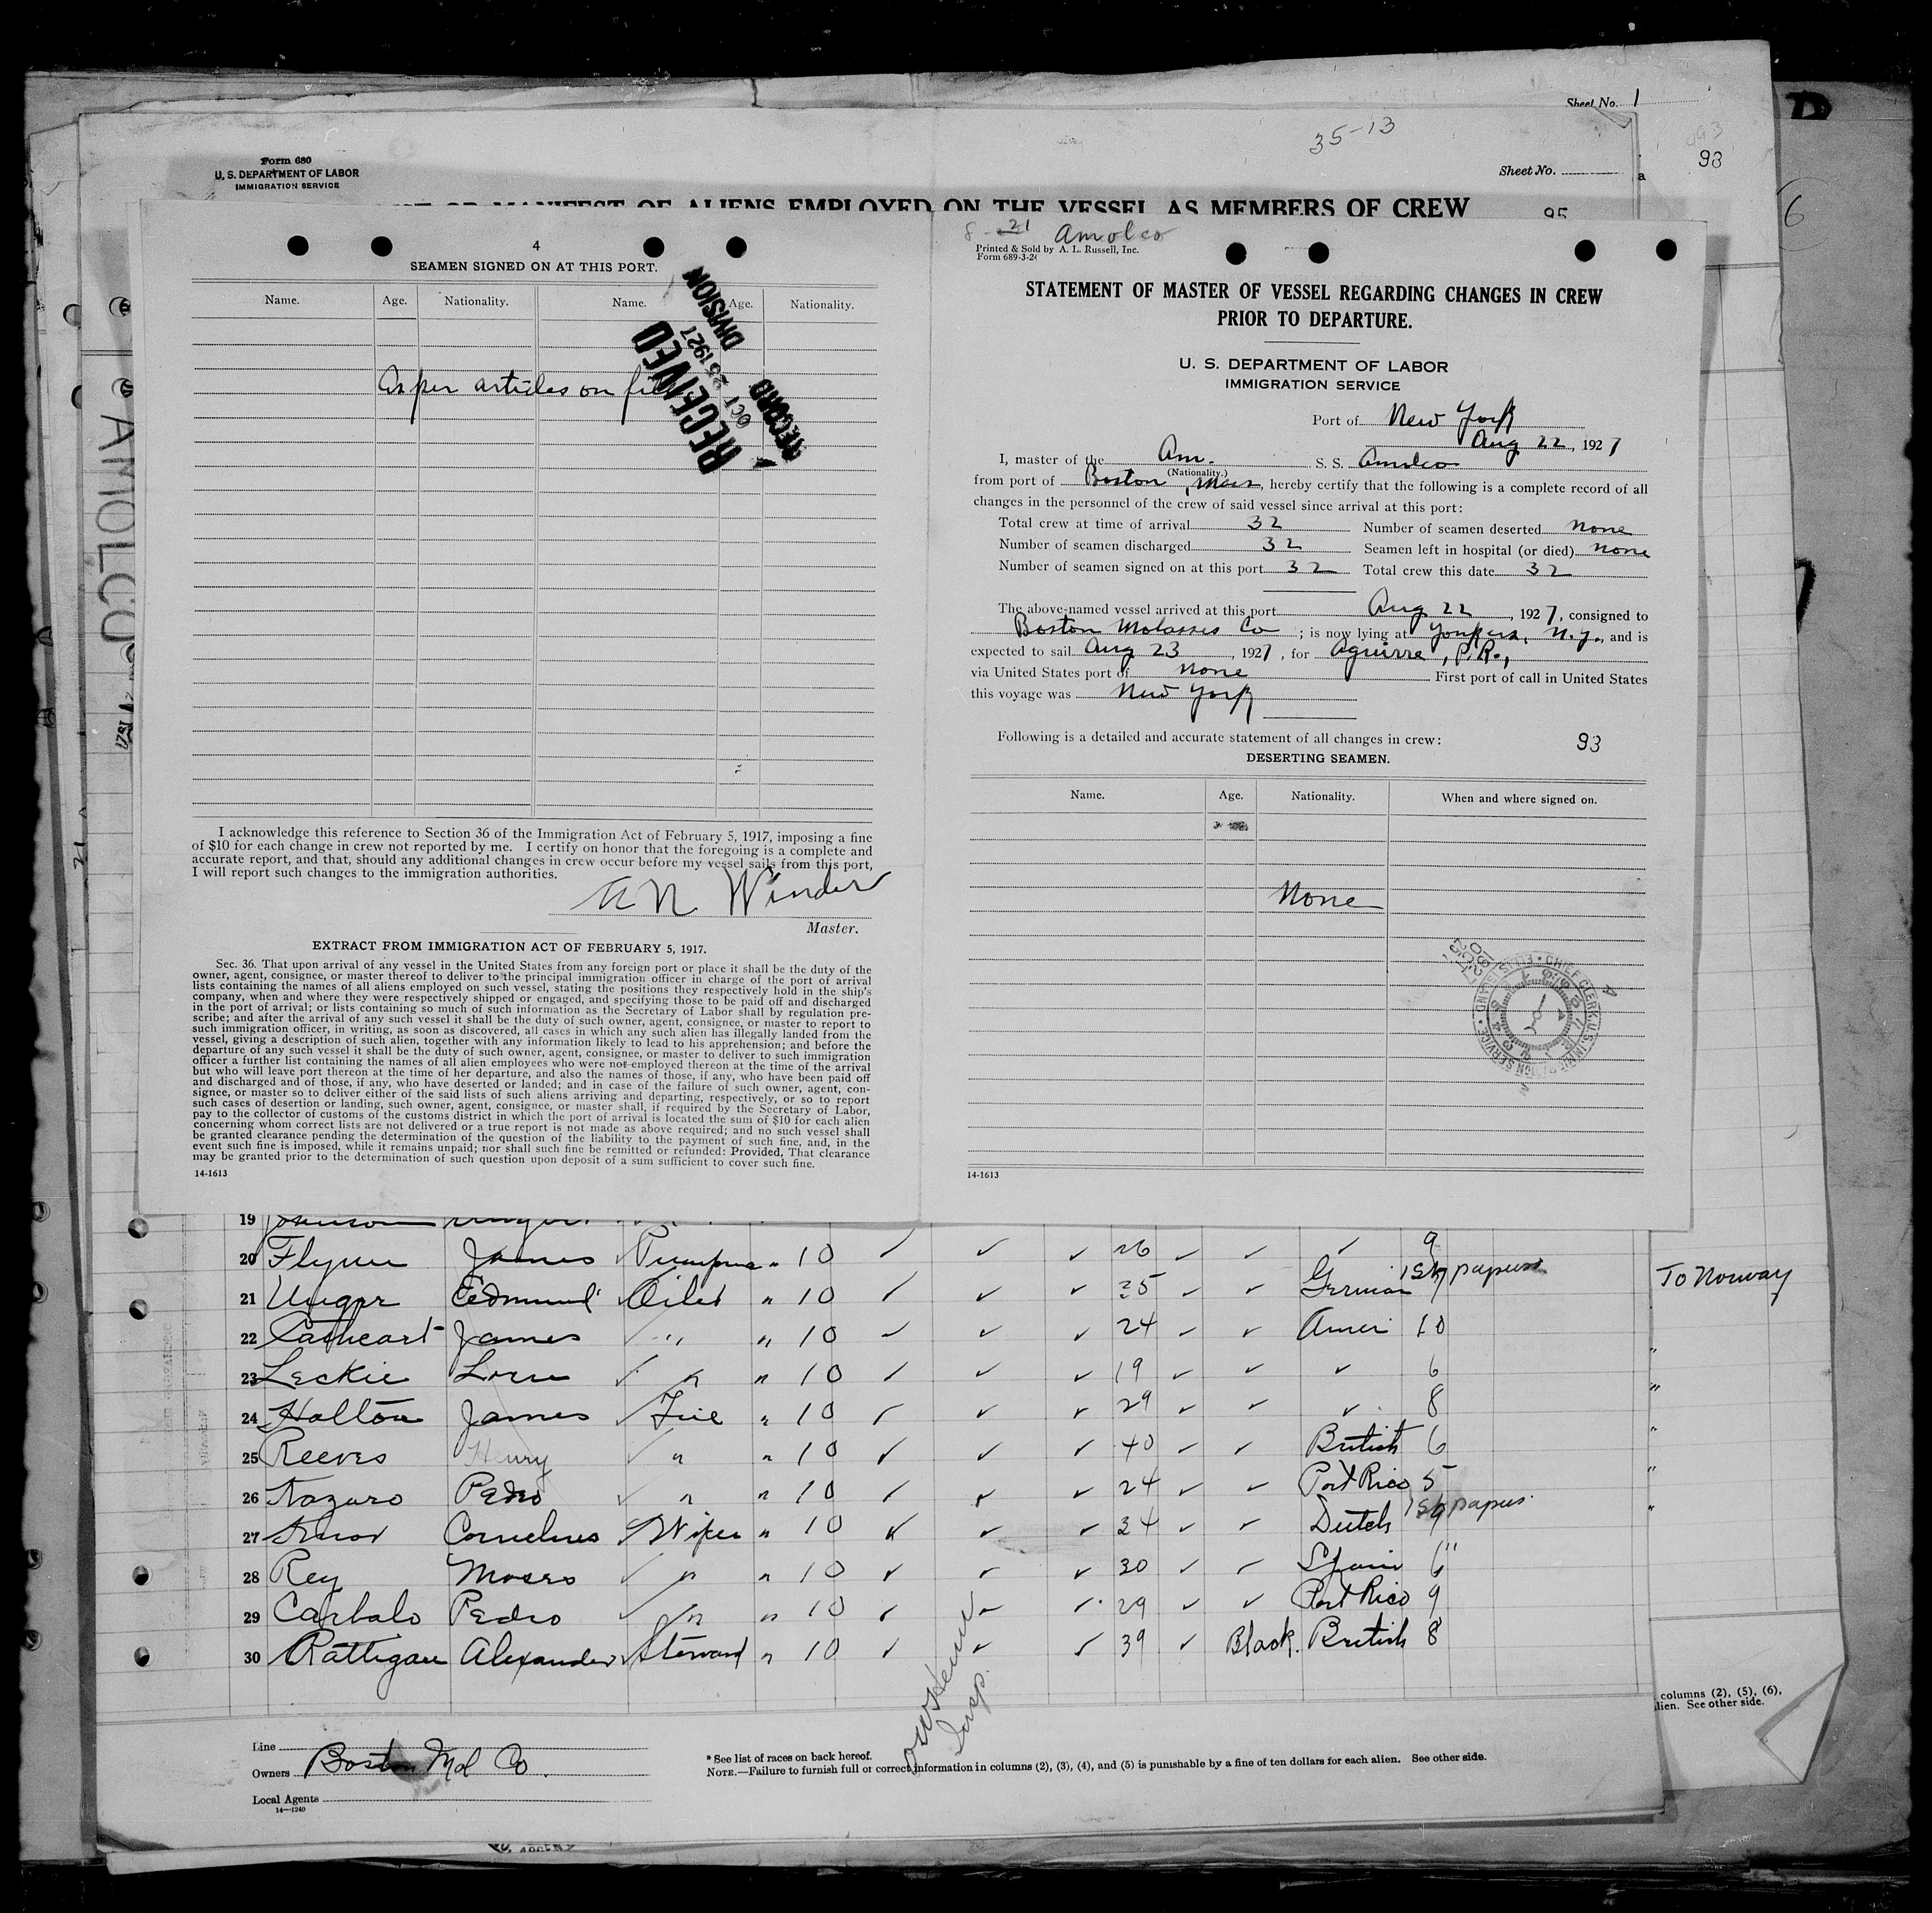 Sheet No. 1
35-13
Sheet No.
93
Form 680
U. S. DEPARTMENT OF LABOR
IMMIGRATION SERVICE
MANIFEST OF ALIENS EMPLOYED ON THE VESSEL AS MEMBERS OF CREW
95
AMOLCO
4
SEAMEN SIGNED ON AT THIS PORT.
Name. Age. Nationality. Name. Age. Nationality.
As per articles on file
RECEIVED
OCT 25 1927
RECORD DIVISION
I acknowledge this reference to Section 36 of the Immigration Act of February 5, 1917, imposing a fine
of $10 for each change in crew not reported by me. I certify on honor that the foregoing is a complete and
accurate report, and that, should any additional changes in crew occur before my vessel sails from this port,
I will report such changes to the immigration authorities.
A N Winder
Master.
EXTRACT FROM IMMIGRATION ACT OF FEBRUARY 5, 1917.
Sec. 36. That upon arrival of any vessel in the United States from any foreign port or place it shall be the duty of the
owner, agent, consignee, or master thereof to deliver to the principal immigration officer in charge of the port of arrival
lists containing the names of all aliens employed on such vessel, stating the positions they respectively hold in the ship's
company, when and where they were respectively shipped or engaged, and specifying those to be paid off and discharged
in the port of arrival; or lists containing so much of such information as the Secretary of Labor shall by regulation pre-
scribe; and after the arrival of any such vessel it shall be the duty of such owner, agent, consignee, or master to report to
such immigration officer, in writing, as soon as discovered, all cases in which any such alien has illegally landed from the
vessel, giving a description of such alien, together with any information likely to lead to his apprehension; and before the
departure of any such vessel it shall be the duty of such owner, agent, consignee, or master to deliver to such immigration
officer a further list containing the names of all alien employees who were not employed thereon at the time of the arrival
but who will leave port thereon at the time of her departure, and also the names of those, if any, who have been paid off
and discharged and of those, if any, who have deserted or landed; and in case of the failure of such owner, agent, con-
signee, or master so to deliver either of the said lists of such aliens arriving and departing, respectively, or so to report
such cases of desertion or landing, such owner, agent, consignee, or master shall, if required by the Secretary of Labor,
pay to the collector of customs of the customs district in which the port of arrival is located the sum of $10 for each alien
concerning whom correct lists are not delivered or a true report is not made as above required; and no such vessel shall
be granted clearance pending the determination of the question of the liability to the payment of such fine, and, in the
event such fine is imposed, while it remains unpaid; nor shall such fine be remitted or refunded: Provided, That clearance
may be granted prior to the determination of such question upon deposit of a sum sufficient to cover such fine.
14-1613
8-21 Amolco
Printed & Sold by A. L. Russell, Inc.
Form 689-3-26
STATEMENT OF MASTER OF VESSEL REGARDING CHANGES IN CREW
PRIOR TO DEPARTURE.
U. S. DEPARTMENT OF LABOR
IMMIGRATION SERVICE
Port of New York
Aug 22, 1927
I, master of the Am. S. S. Amolco
(Nationality.)
from port of Boston, Mass, hereby certify that the following is a complete record of all
changes in the personnel of the crew of said vessel since arrival at this port:
Total crew at time of arrival 32 Number of seamen deserted None
Number of seamen discharged 32 Seamen left in hospital (or died) none
Number of seamen signed on at this port 32 Total crew this date 32
The above-named vessel arrived at this port Aug 22, 1927, consigned to
Boston Molasses Co; is now lying at Yonkers, N.Y., and is
expected to sail Aug 23, 1927, for Aguirre, P.R.,
via United States port of none First port of call in United States
this voyage was New York
Following is a detailed and accurate statement of all changes in crew: 93
DESERTING SEAMEN.
Name. Age. Nationality. When and where signed on.
None
CHIEF CLERK, U.S. IMMIGRATION SERVICE ELLIS ISLAND
14-1613
19 Johnson
20 Flynn James Pumpman " 10 26 9
21 Unger Edmund Oiler " 10 35 German 9 1st papers To Norway
22 Cathcart James " " 10 24 Amer 10 "
23 Leckie " " 10 19 6 "
24 Halton James Fire " 10 29 8 "
25 Reeves Henry " " 10 40 British 6 "
26 Nazaro Pedro " " 10 24 Port Rico 5 "
27 Cornelius Wiper " 10 34 Dutch 9 1st papers
28 Rey " " 10 30 Spain 6
29 Carbalo Pedro " " 10 29 Port Rico 9
30 Rattigan Alexander Steward " 10 39 Black. British 8
Insp.
columns (2), (5), (6),
alien. See other side.
Line
Owners Boston Mol Co.
Local Agents
14-1240
* See list of races on back hereof.
NOTE.—Failure to furnish full or correct information in columns (2), (3), (4), and (5) is punishable by a fine of ten dollars for each alien. See other side.